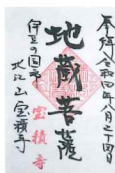 奉拝令和四年八月二十四日
地蔵菩薩
伊豆の国市
北江山宝積寺
宝積寺